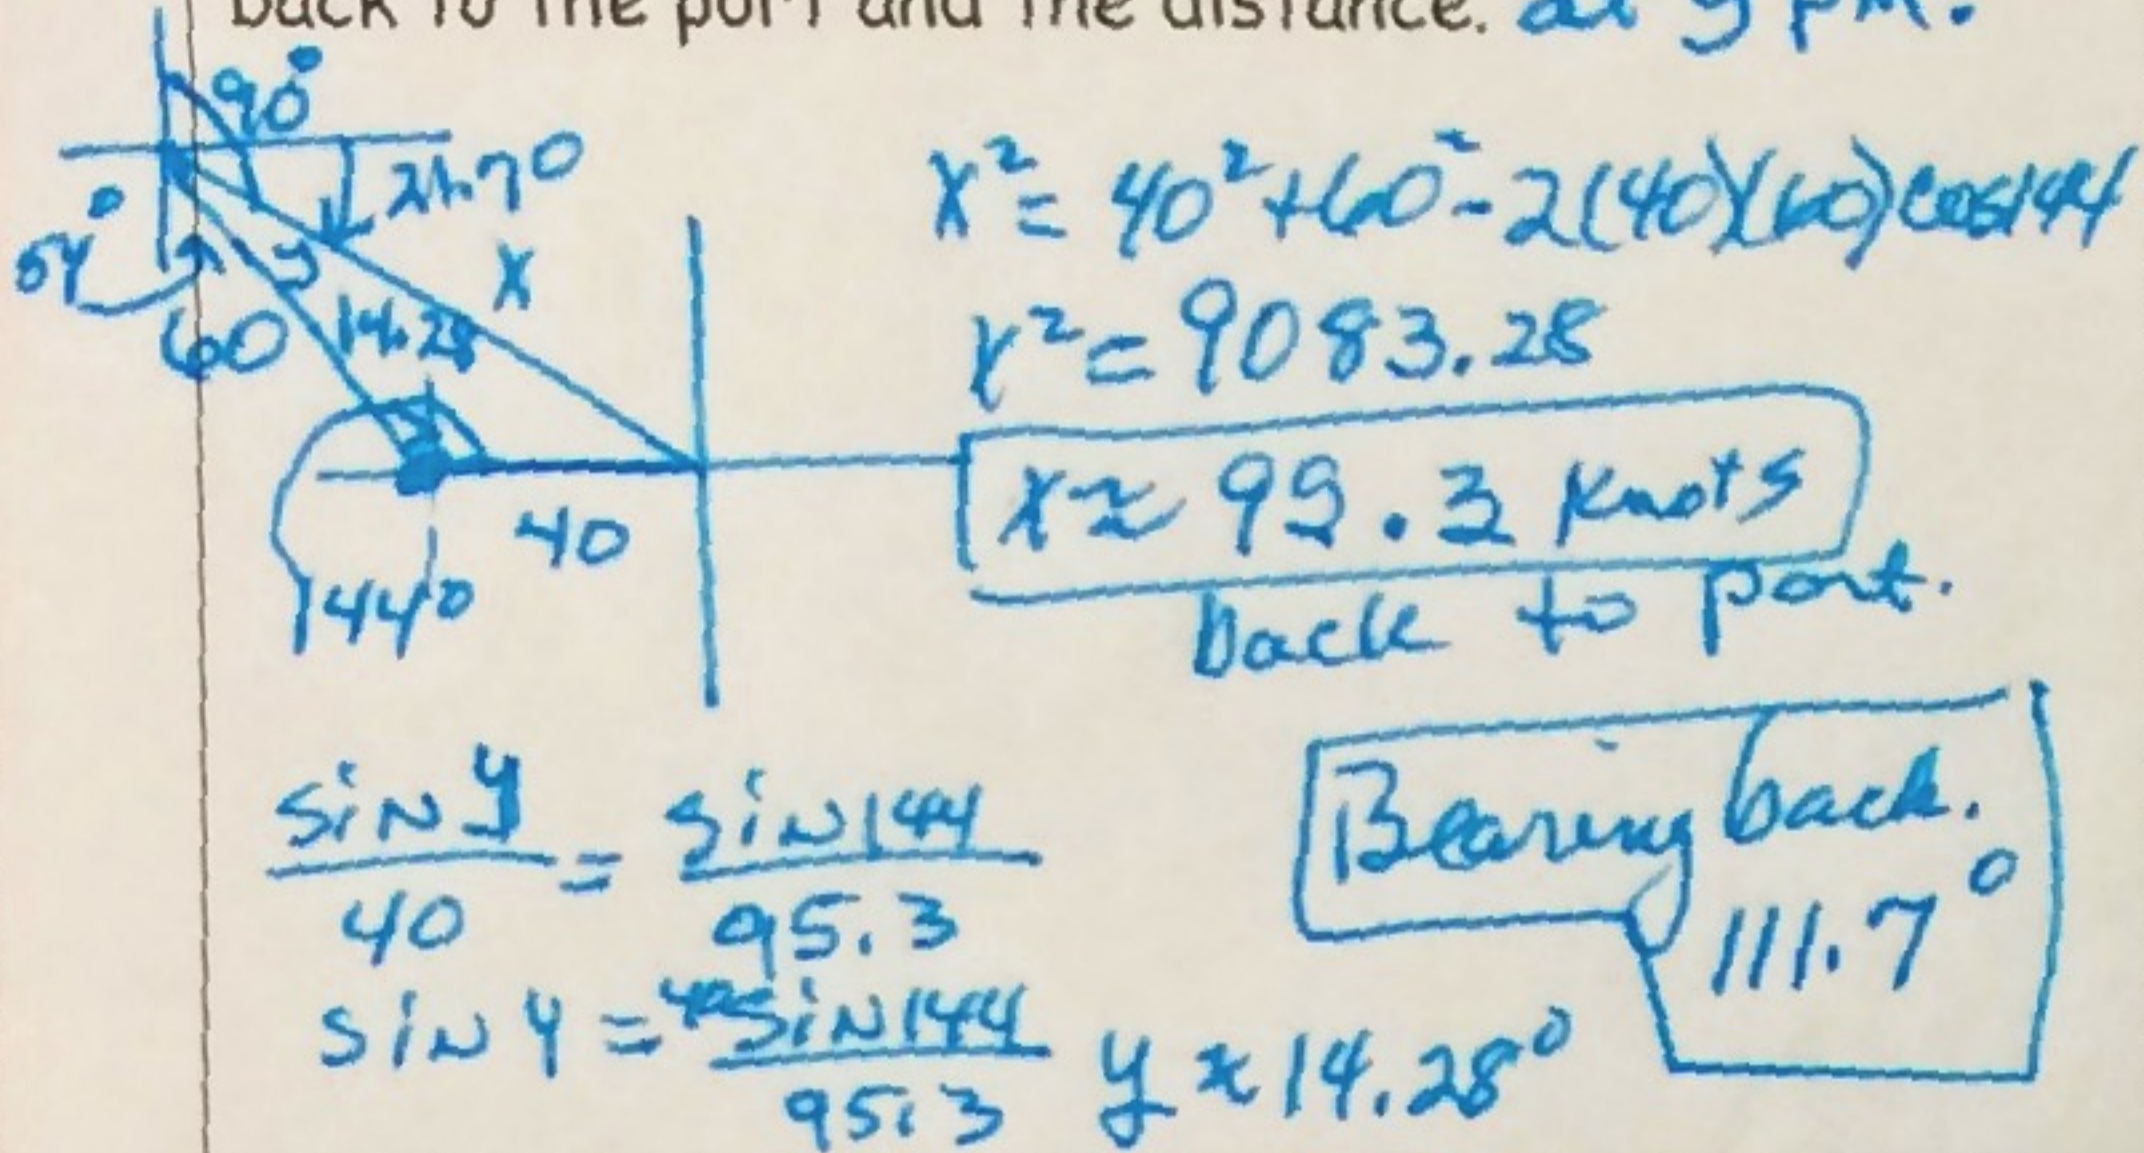 back to the port and the distance. at 5 pm.
90°
21.7°
54°
x
60
14.28
40
144°
x² = 40² + 60² - 2(40)(60)cos144
x² = 9083.28
x ≈ 99.3 knots
back to port.
sin y / 40 = sin144 / 95.3
sin y = 40 sin144 / 95.3
y ≈ 14.28°
Bearing back.
111.7°